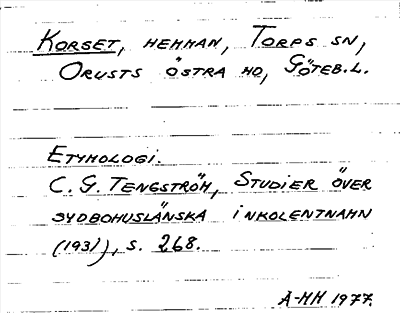 KORSET, HEMMAN, TORPS SN,
ORUSTS ÖSTRA HD, GÖTEB.L.
ETYMOLOGI.
C. G. TENGSTRÖM, STUDIER ÖVER
SYDBOHUSLÄNSKA INKOLENTNAMN
(1931), S. 268.
A-MH 1977.